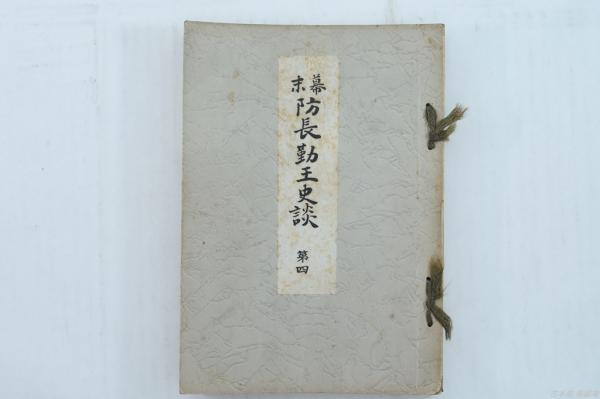 幕末
防長勤王史談
第四